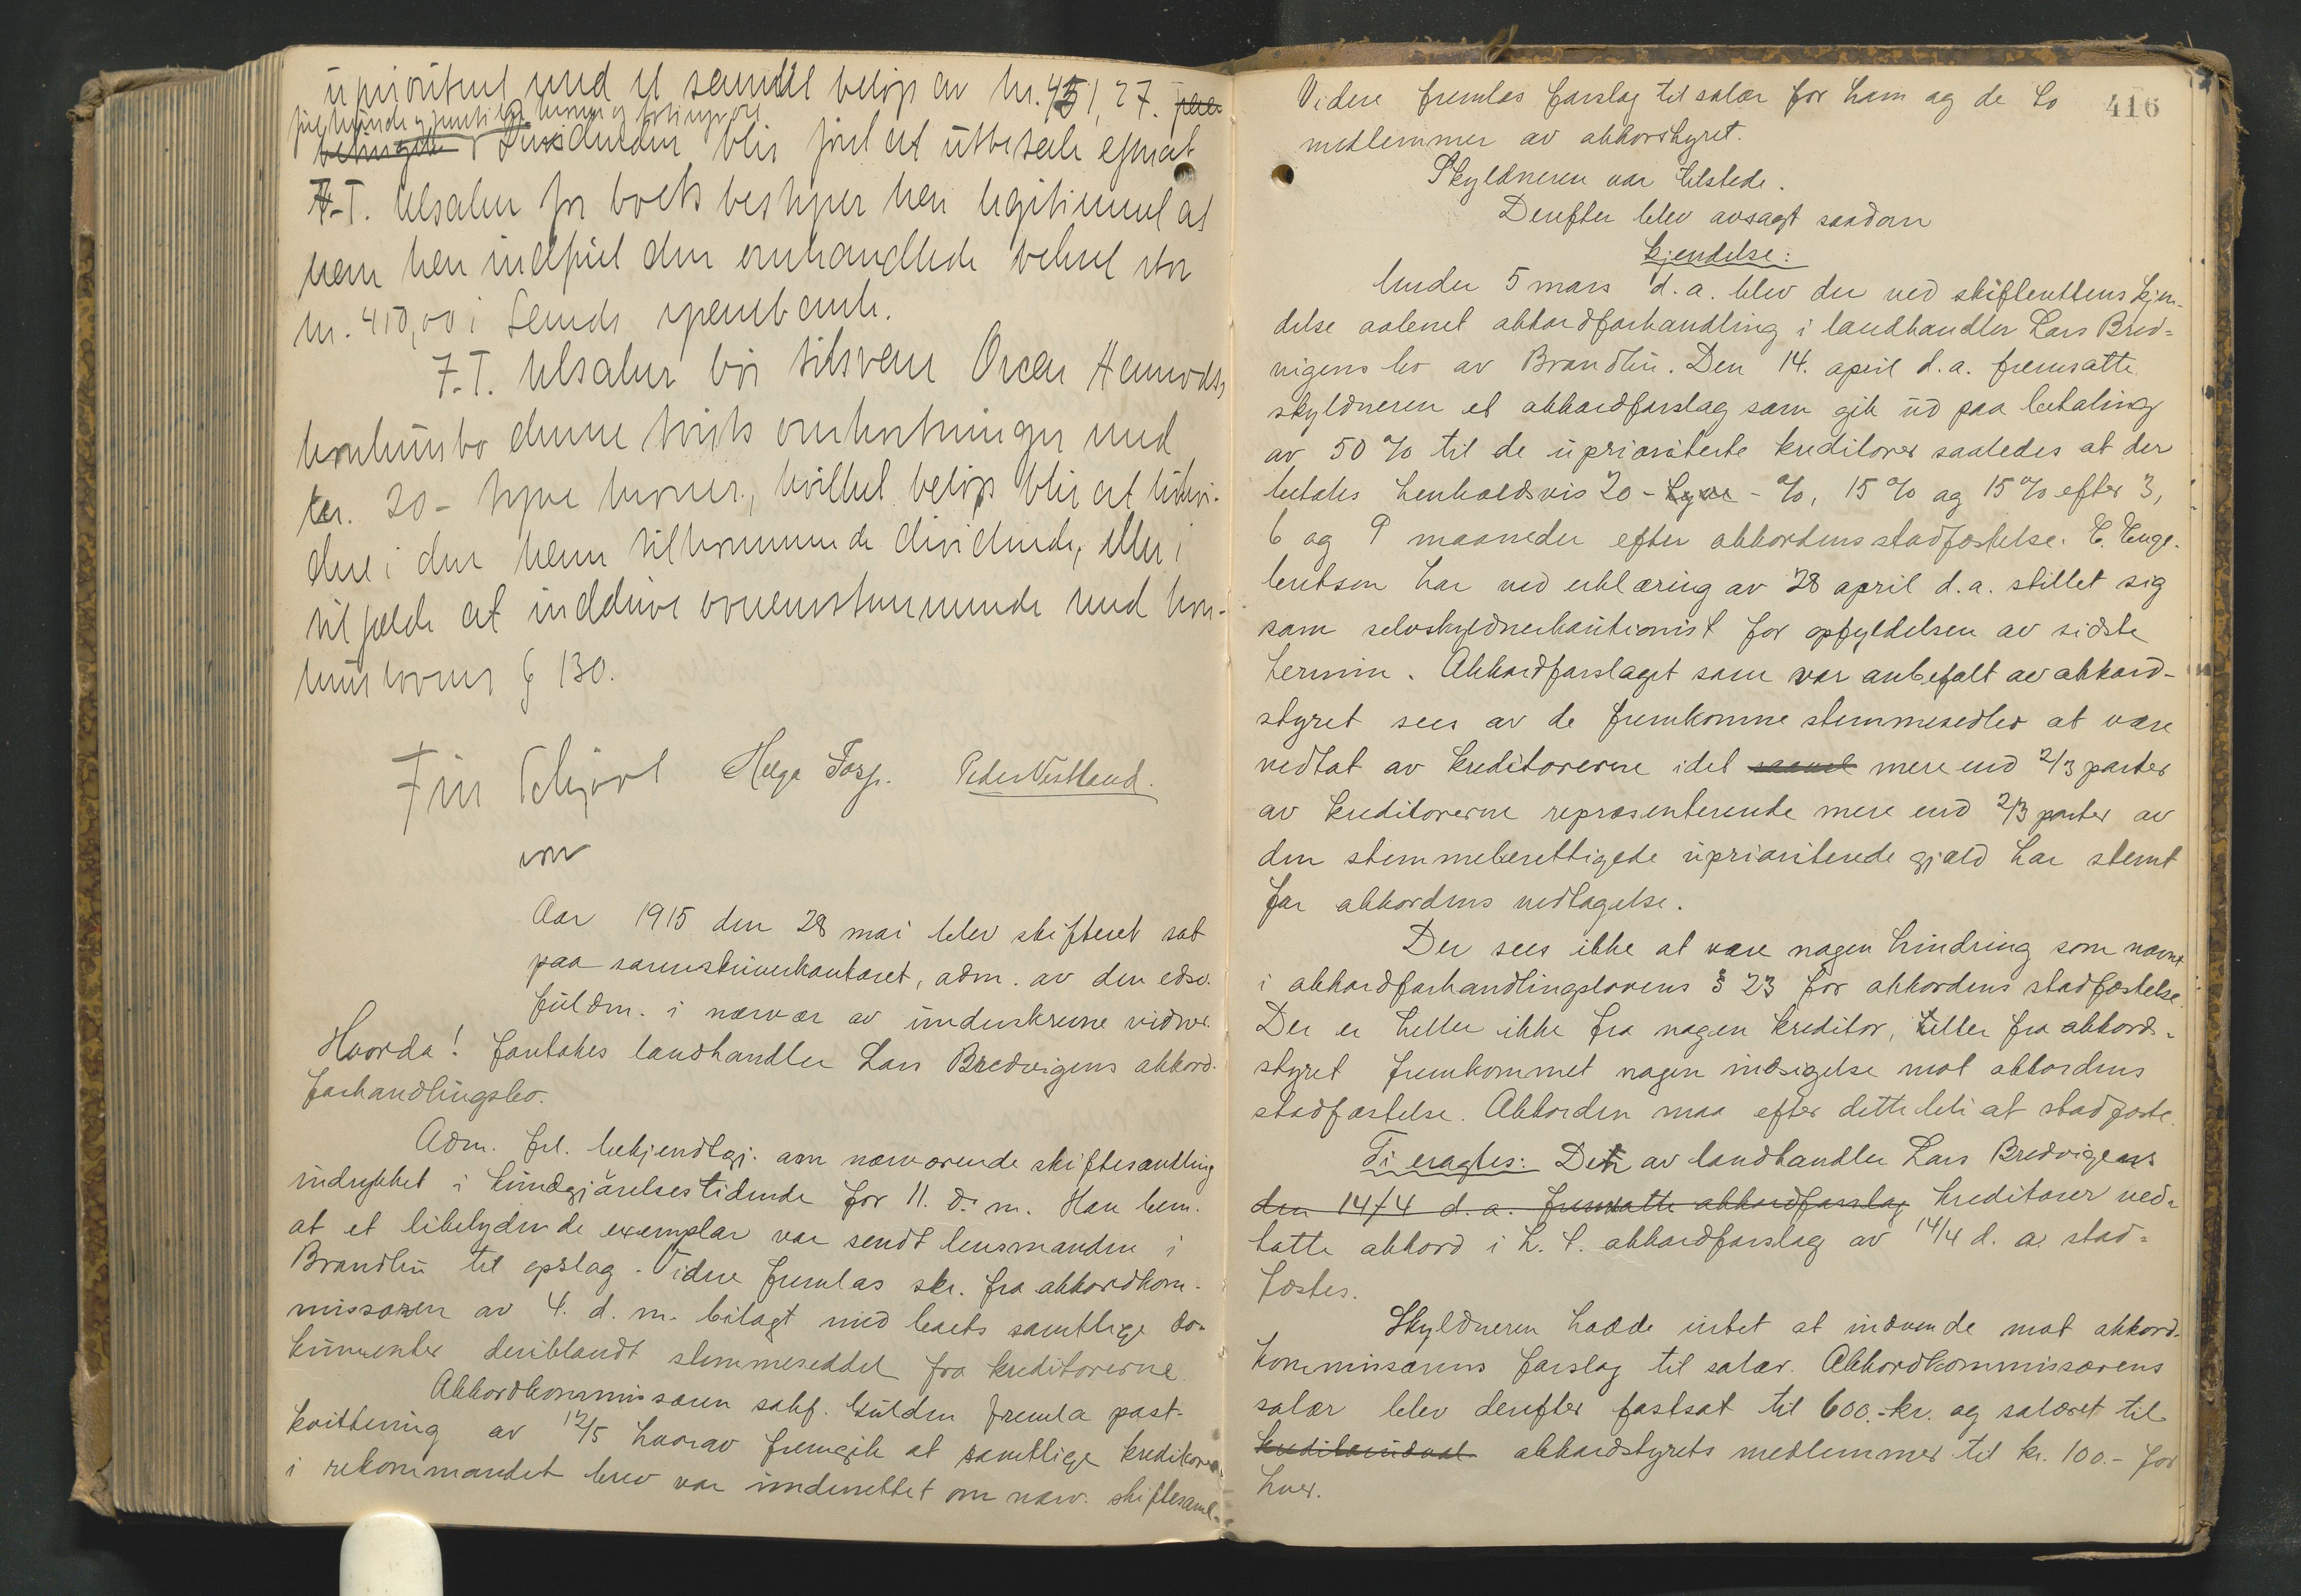 uprioritert med et samlet beløp av kr. 451,27.
Dividenden blir først at utbetale efterat
F.T. Ulsaker for boets bestyrer har legitimeret at
ham har indfriet den omhandlede veksel stor
kr. 410,00 i Lands sparebank.
F.T. Ulsaker bør tilsvare Oscar Hemrods
konkursbo denne tvists omkostninger med
kr. 20 - tyve kroner, hvilket beløp blir at likvi-
dere i den ham tilkommende dividende, eller i
tilfælde at inddrive overensstemmende med kon-
kurslovens § 130.
Fin Schjøll Helga Torp. Peder Vestland.
Aar 1915 den 28 mai blev skifteret sat
paa sorenskriverkontoret, adm. av den edsv.
fuldm. i nærvær av underskrevne vidner.
Hvorda! Foretokes landhandler Lars Bredvigens akkord-
forhandlingsbo.
Adm. frl. bekjendtgj. om nærværende skiftesamling
indrykket i Kundgjørelsestidende for 11. d. m. Han bem.
at et likelydende exemplar var sendt lensmanden i
Brandbu til opslag. Videre fremlas skr. fra akkordkom-
missæren av 4. d. m. bilagt med boets samtlige do-
kumenter deriblandt stemmeseddel fra kreditorerne.
Akkordkommissæren sakf. Gulden fremla post-
kvittering av 12/5 hvorav fremgik at samtlige kreditorer
i rekommandert brev var underrettet om nærv. skiftesaml-
416
Videre fremlas forslag til salær for ham og de to
medlemmer av akkordstyret.
Skyldneren var tilstede.
Derefter blev avsagt saadan
Kjendelse:
Under 5 mars d. a. blev der ved skifterettens kjen-
delse aabnet akkordforhandling i landhandler Lars Bred-
vigens bo av Brandbu. Den 14. april d. a. fremsatte
skyldneren et akkordforslag som gik ud paa betaling
av 50 % til de uprioriterte kreditorer saaledes at der
betales henholdsvis 20 - tyve - %, 15 % og 15 % efter 3,
6 og 9 maaneder efter akkordens stadfæstelse. E. Enge-
bretsen har ved erklæring av 28 april d. a. stillet sig
som selvskyldnerkautionist for opfyldelsen av sidste
termin. Akkordforslaget som var anbefalt av akkord-
styret sees av de fremkomne stemmesedler at være
vedtat av kreditorerne idet mere end 2/3 parter
av kreditorerne repræsenterende mere end 2/3 parter av
den stemmeberettigede uprioriterede gjæld har stemt
for akkordens vedtagelse.
Der sees ikke at være nogen hindring som nævnt
i akkordforhandlingslovens § 23 for akkordens stadfæstelse.
Der er heller ikke fra nogen kreditor, heller fra akkord-
styret fremkommet nogen indsigelse mot akkordens
stadfæstelse. Akkorden maa efter dette bli at stadfæste.
Ti eragtes: Den av landhandler Lars Bredvigens
den 14/4 d. a. fremsatte akkordforslag kreditorer ved-
tatte akkord i h. t. akkordforslag av 14/4 d. a. stad-
fæstes.
Skyldneren hadde intet at indvende mot akkord-
kommissærens forslag til salær. Akkordkommissærens
salær blev derefter fastsat til 600.- kr. og salæret til
akkordstyrets medlemmer til kr. 100.- for
hver.